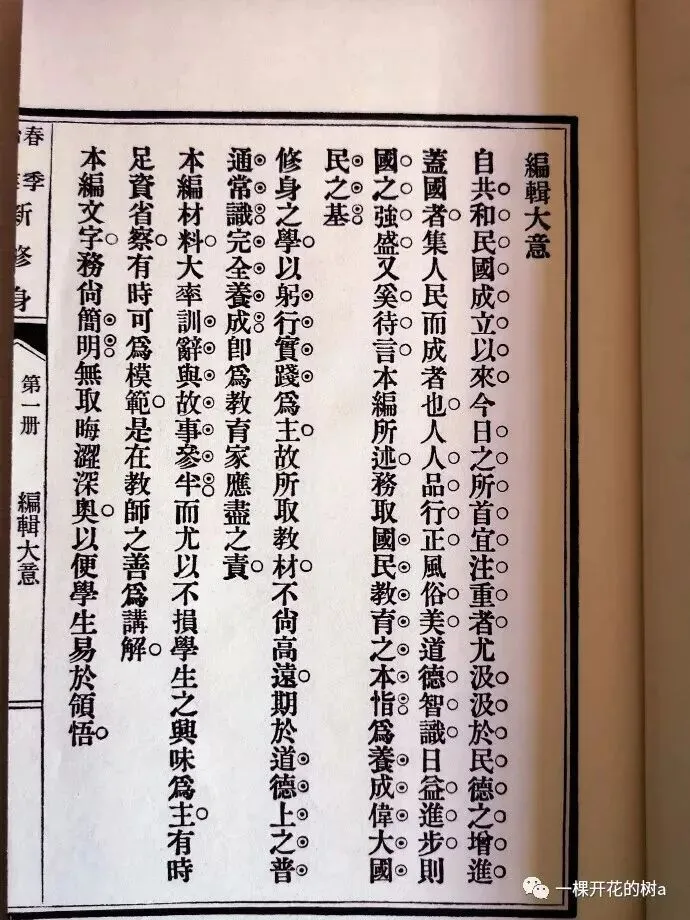 編輯大意
自共和民國成立以來今日之所首宜注重者尤汲汲於民德之增進
蓋國者集人民而成者也人人品行正風俗美道德智識日益進步則
國之強盛又奚待言本編所述務取國民教育之本恉爲養成偉大國
民之基
修身之學以躬行實踐爲主故所取教材不尙高遠期於道德上之普
通常識完全養成卽爲教育家應盡之責
本編材料大率訓辭與故事參半而尤以不損學生之興味爲主有時
足資省察有時可爲模範是在教師之善爲講解
本編文字務尙簡明無取晦澀深奧以便學生易於領悟
春季新修身
第一册
編輯大意
一棵开花的树a